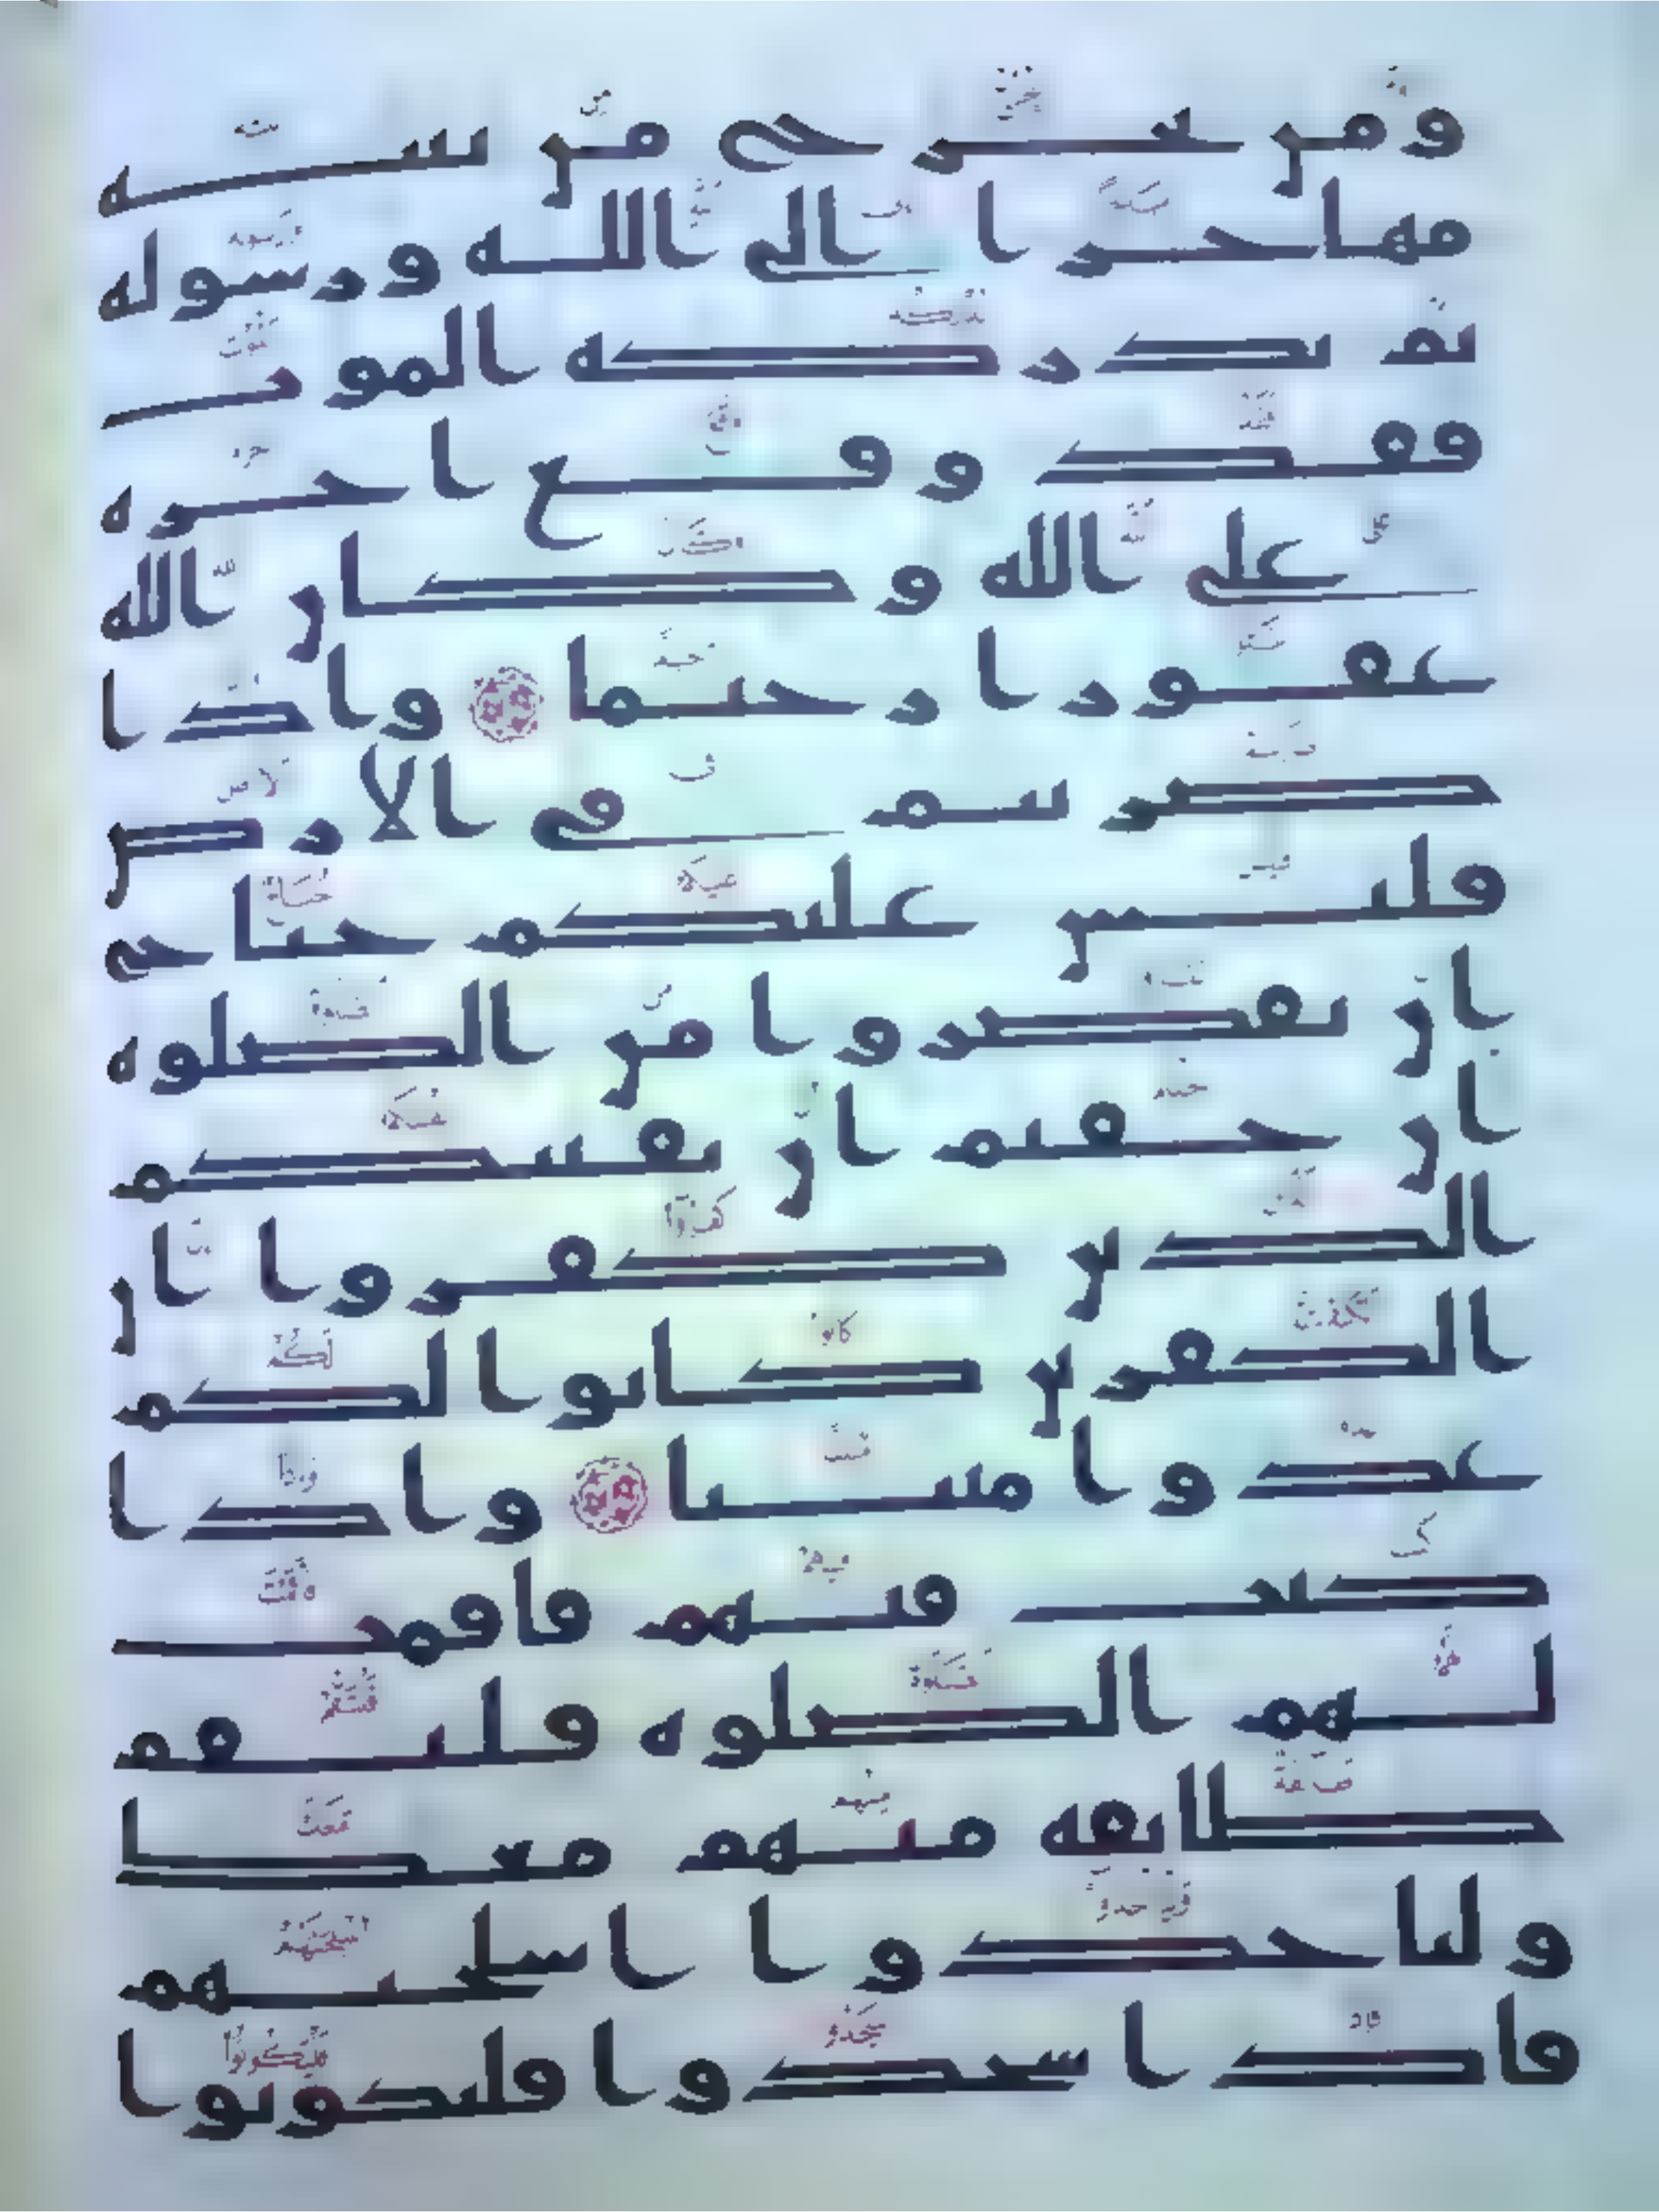 ومن يخرج من بيته
مهاجرا الى الله ورسوله
ثم يدركه الموت
فقد وقع اجره
على الله وكان الله
غفورا رحيما واذا
ضربتم فى الارض
فليس عليكم جناح
ان تقصروا من الصلوه
ان خفتم ان يفتنكم
الذين كفروا ان
الكفرين كانوا لكم
عدوا مبينا واذا
كنت فيهم فاقمت
لهم الصلوه فلتقم
طايفه منهم معك
ولياخذوا اسلحتهم
فاذا سجدوا فليكونوا